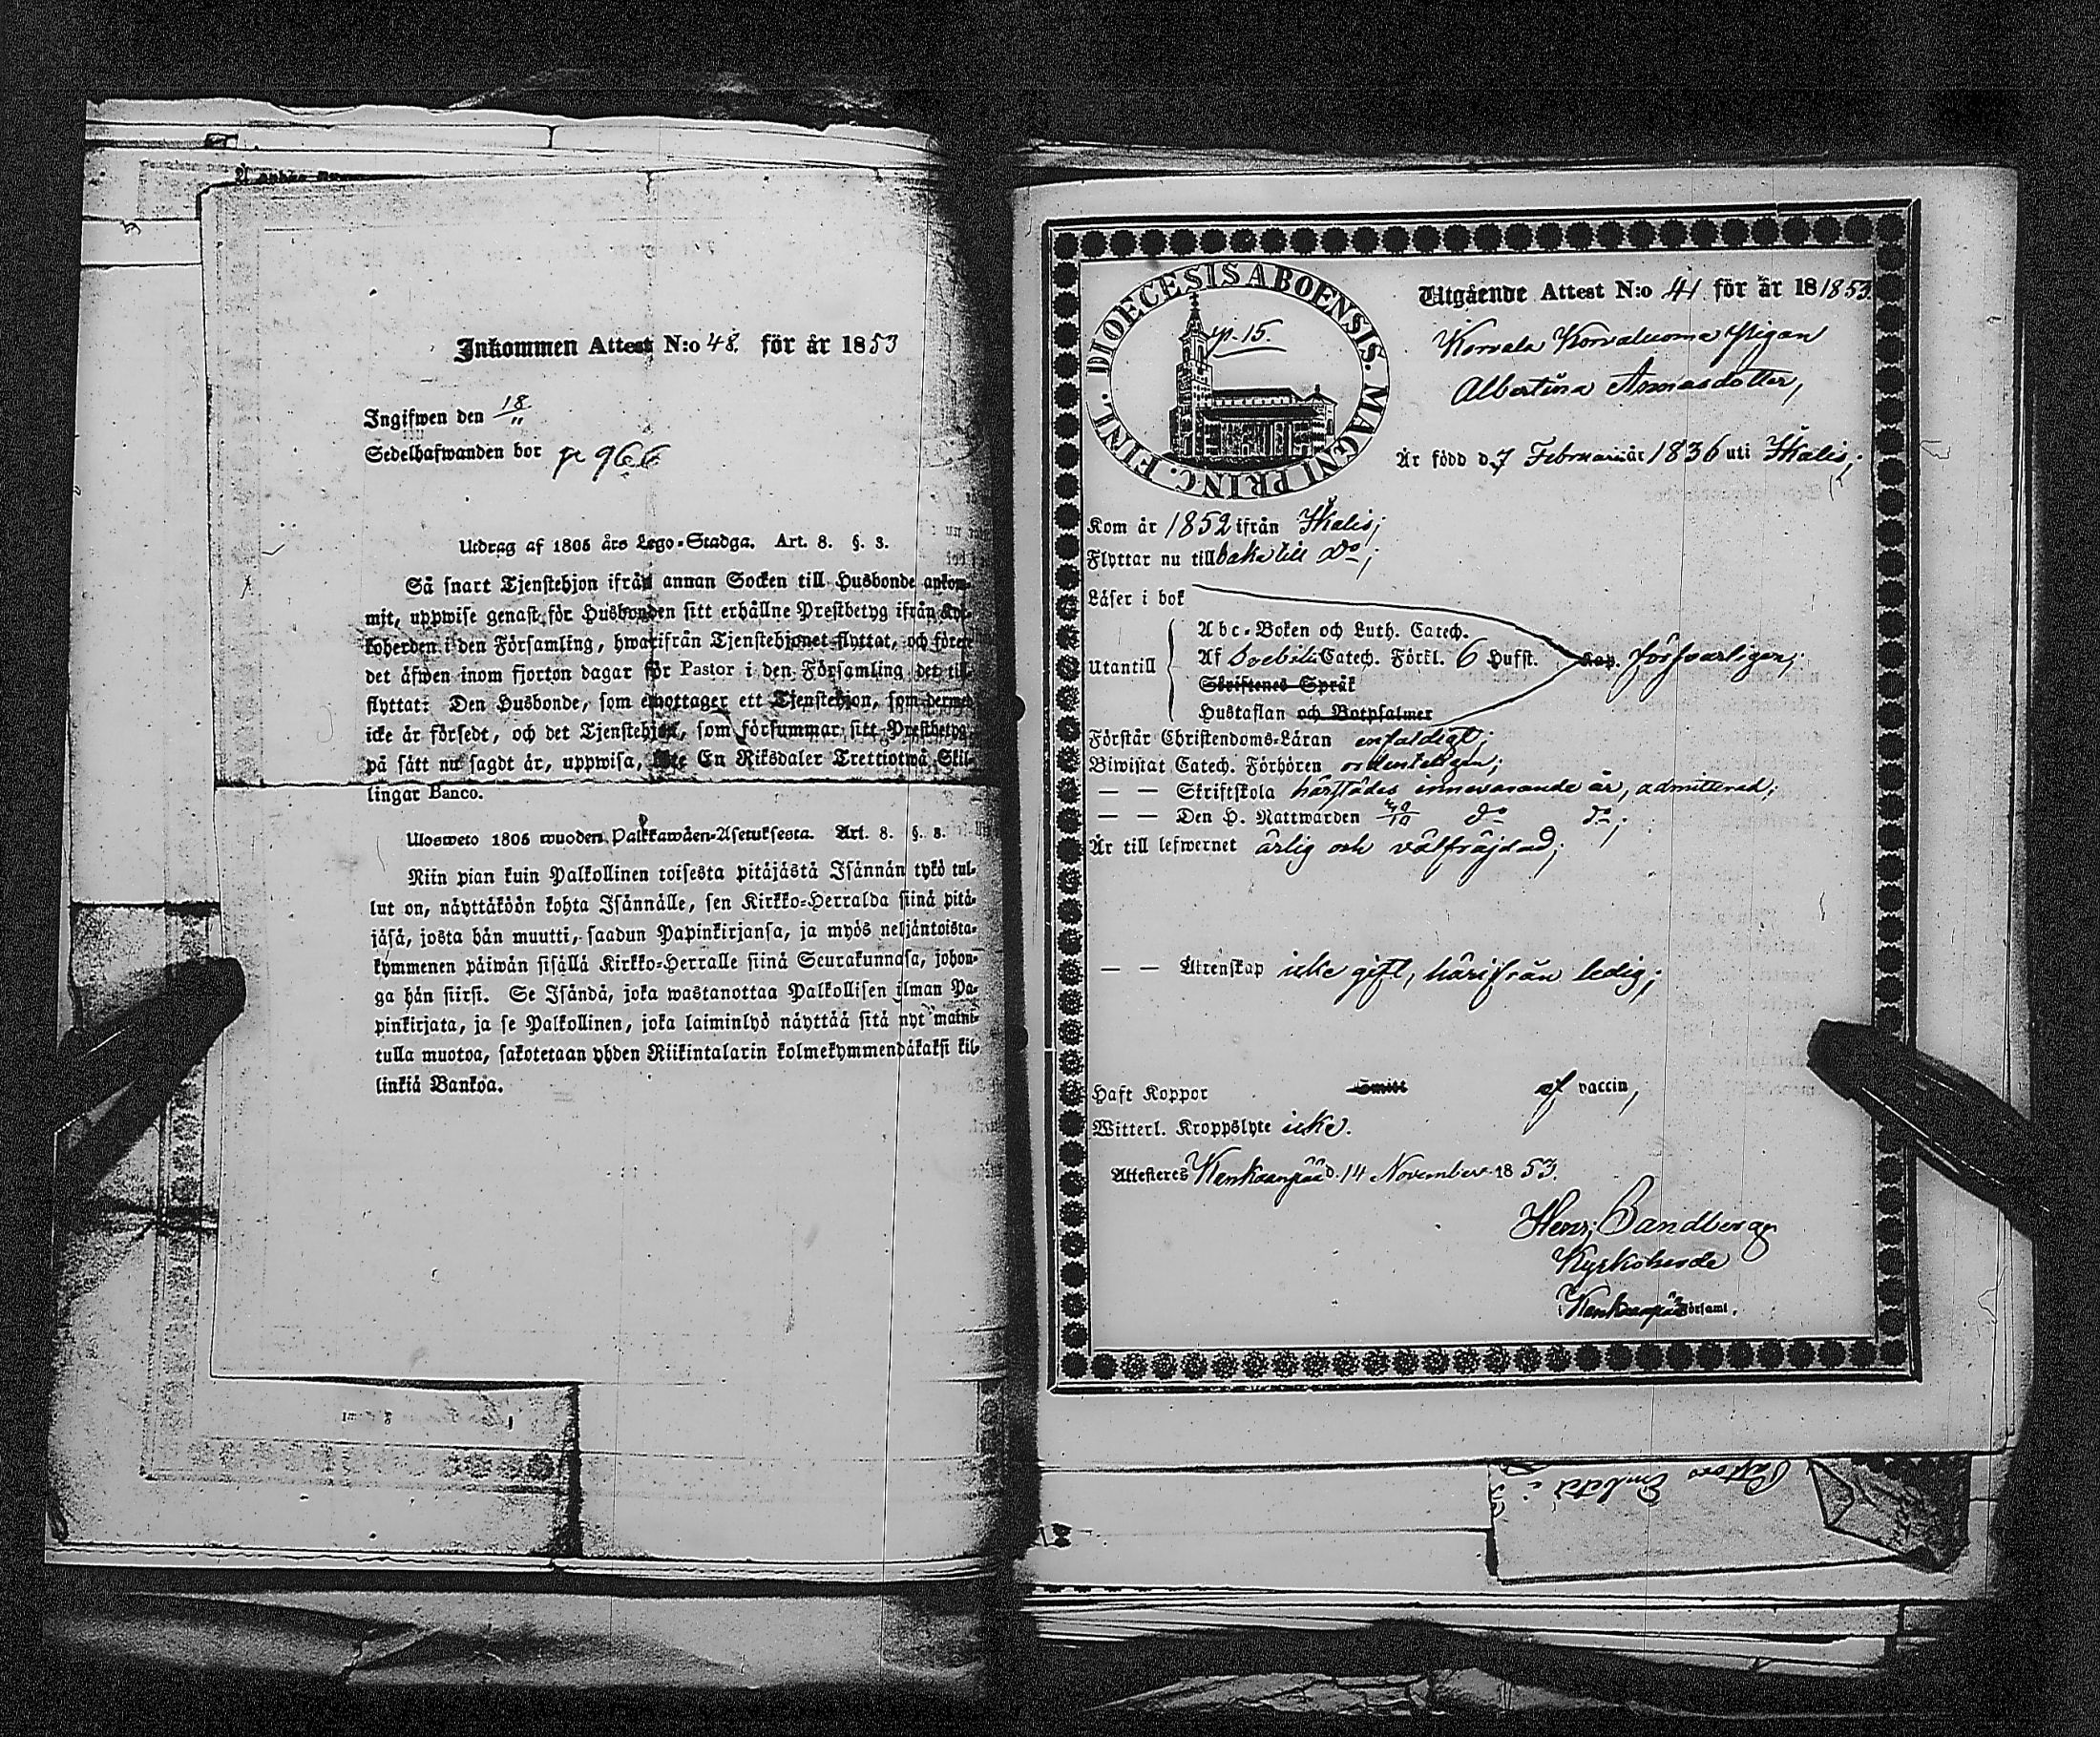 Inkommen Attest N:o 48. för år 1853
Ingifwen den 18/11
Sedelhafwanden bor p 966
Utdrag af 1805 års Lego-Stadga. Art. 8. §. 3.
Så snart Tjenstehjon ifrån annan Socken till Husbonde ankom-
mit, uppwise genast för Husbonden sitt erhållne Prestbetyg ifrån Kyr-
koherden i den Församling, hwarifrån Tjenstehjonet flyttat, och förete
det äfwen inom fjorton dagar för Pastor i den Församling det till-
flyttat: Den Husbonde, som emottager ett Tjenstehjon, som dermed
icke är försedt, och det Tjenstehjon, som försummar sitt Prestbetyg,
på sätt nu sagdt är, uppwisa, böte En Riksdaler Trettiotwå Skil-
lingar Banco.
Ulosweto 1805 wuoden Palkkawäen-Asetuksesta. Art. 8. §. 3.
Niin pian kuin Palkollinen toisesta pitäjästä Isännän tykö tul-
lut on, näyttäköön kohta Isännälle, sen Kirkko-Herralda siinä pitä-
jäsä, josta hän muutti, saadun Papinkirjansa, ja myös neljäntoista-
kymmenen päiwän sisällä Kirkko-Herralle siinä Seurakunnasa, johon-
ga hän siirsi. Se Isändä, joka wastanottaa Palkollisen ilman Pa-
pinkirjata, ja se Palkollinen, joka laiminlyö näyttää sitä nyt maini-
tulla muotoa, sakotetaan yhden Riikintalarin kolmekymmendäkaksi kil-
linkiä Bankoa.
DIOECESIS ABOENSIS. MAGNI PRINC. FINL.
p. 15.
Utgående Attest N:o 41 för år 181853.
Korvala Korvaluoma Pigan
Albertina Annasdotter,
Är född d. 7 Februarii år 1836 uti Ikalis;
Kom år 1852 ifrån Ikalis;
Flyttar nu till baka till Do;
Läser i bok
Utantill
Abc-Boken och Luth. Catech.
Af Svebilii Catech. Förkl. 6 Hufst. Kap. försvarligen;
Skriftenes Språk
Hustaflan och Botpsalmer
Förstår Christendoms-Läran enfaldigt;
Biwistat Catech. Förhören ordenteligen;
— — Skriftskola härstädes innevarande år, admitterad;
— — Den H. Nattwarden do do;
Är till lefwernet ärlig och välfräjdad;
— — Äktenskap icke gift, härifrån ledig;
Haft Koppor Smitt af vaccin,
Witterl. Kroppslyte icke.
Attesteres Kankaanpää d. 14 November 1853.
Henr. Sandberg
Kyrkoherde
i Kankaanpää Församl.
Pastors Embetet i